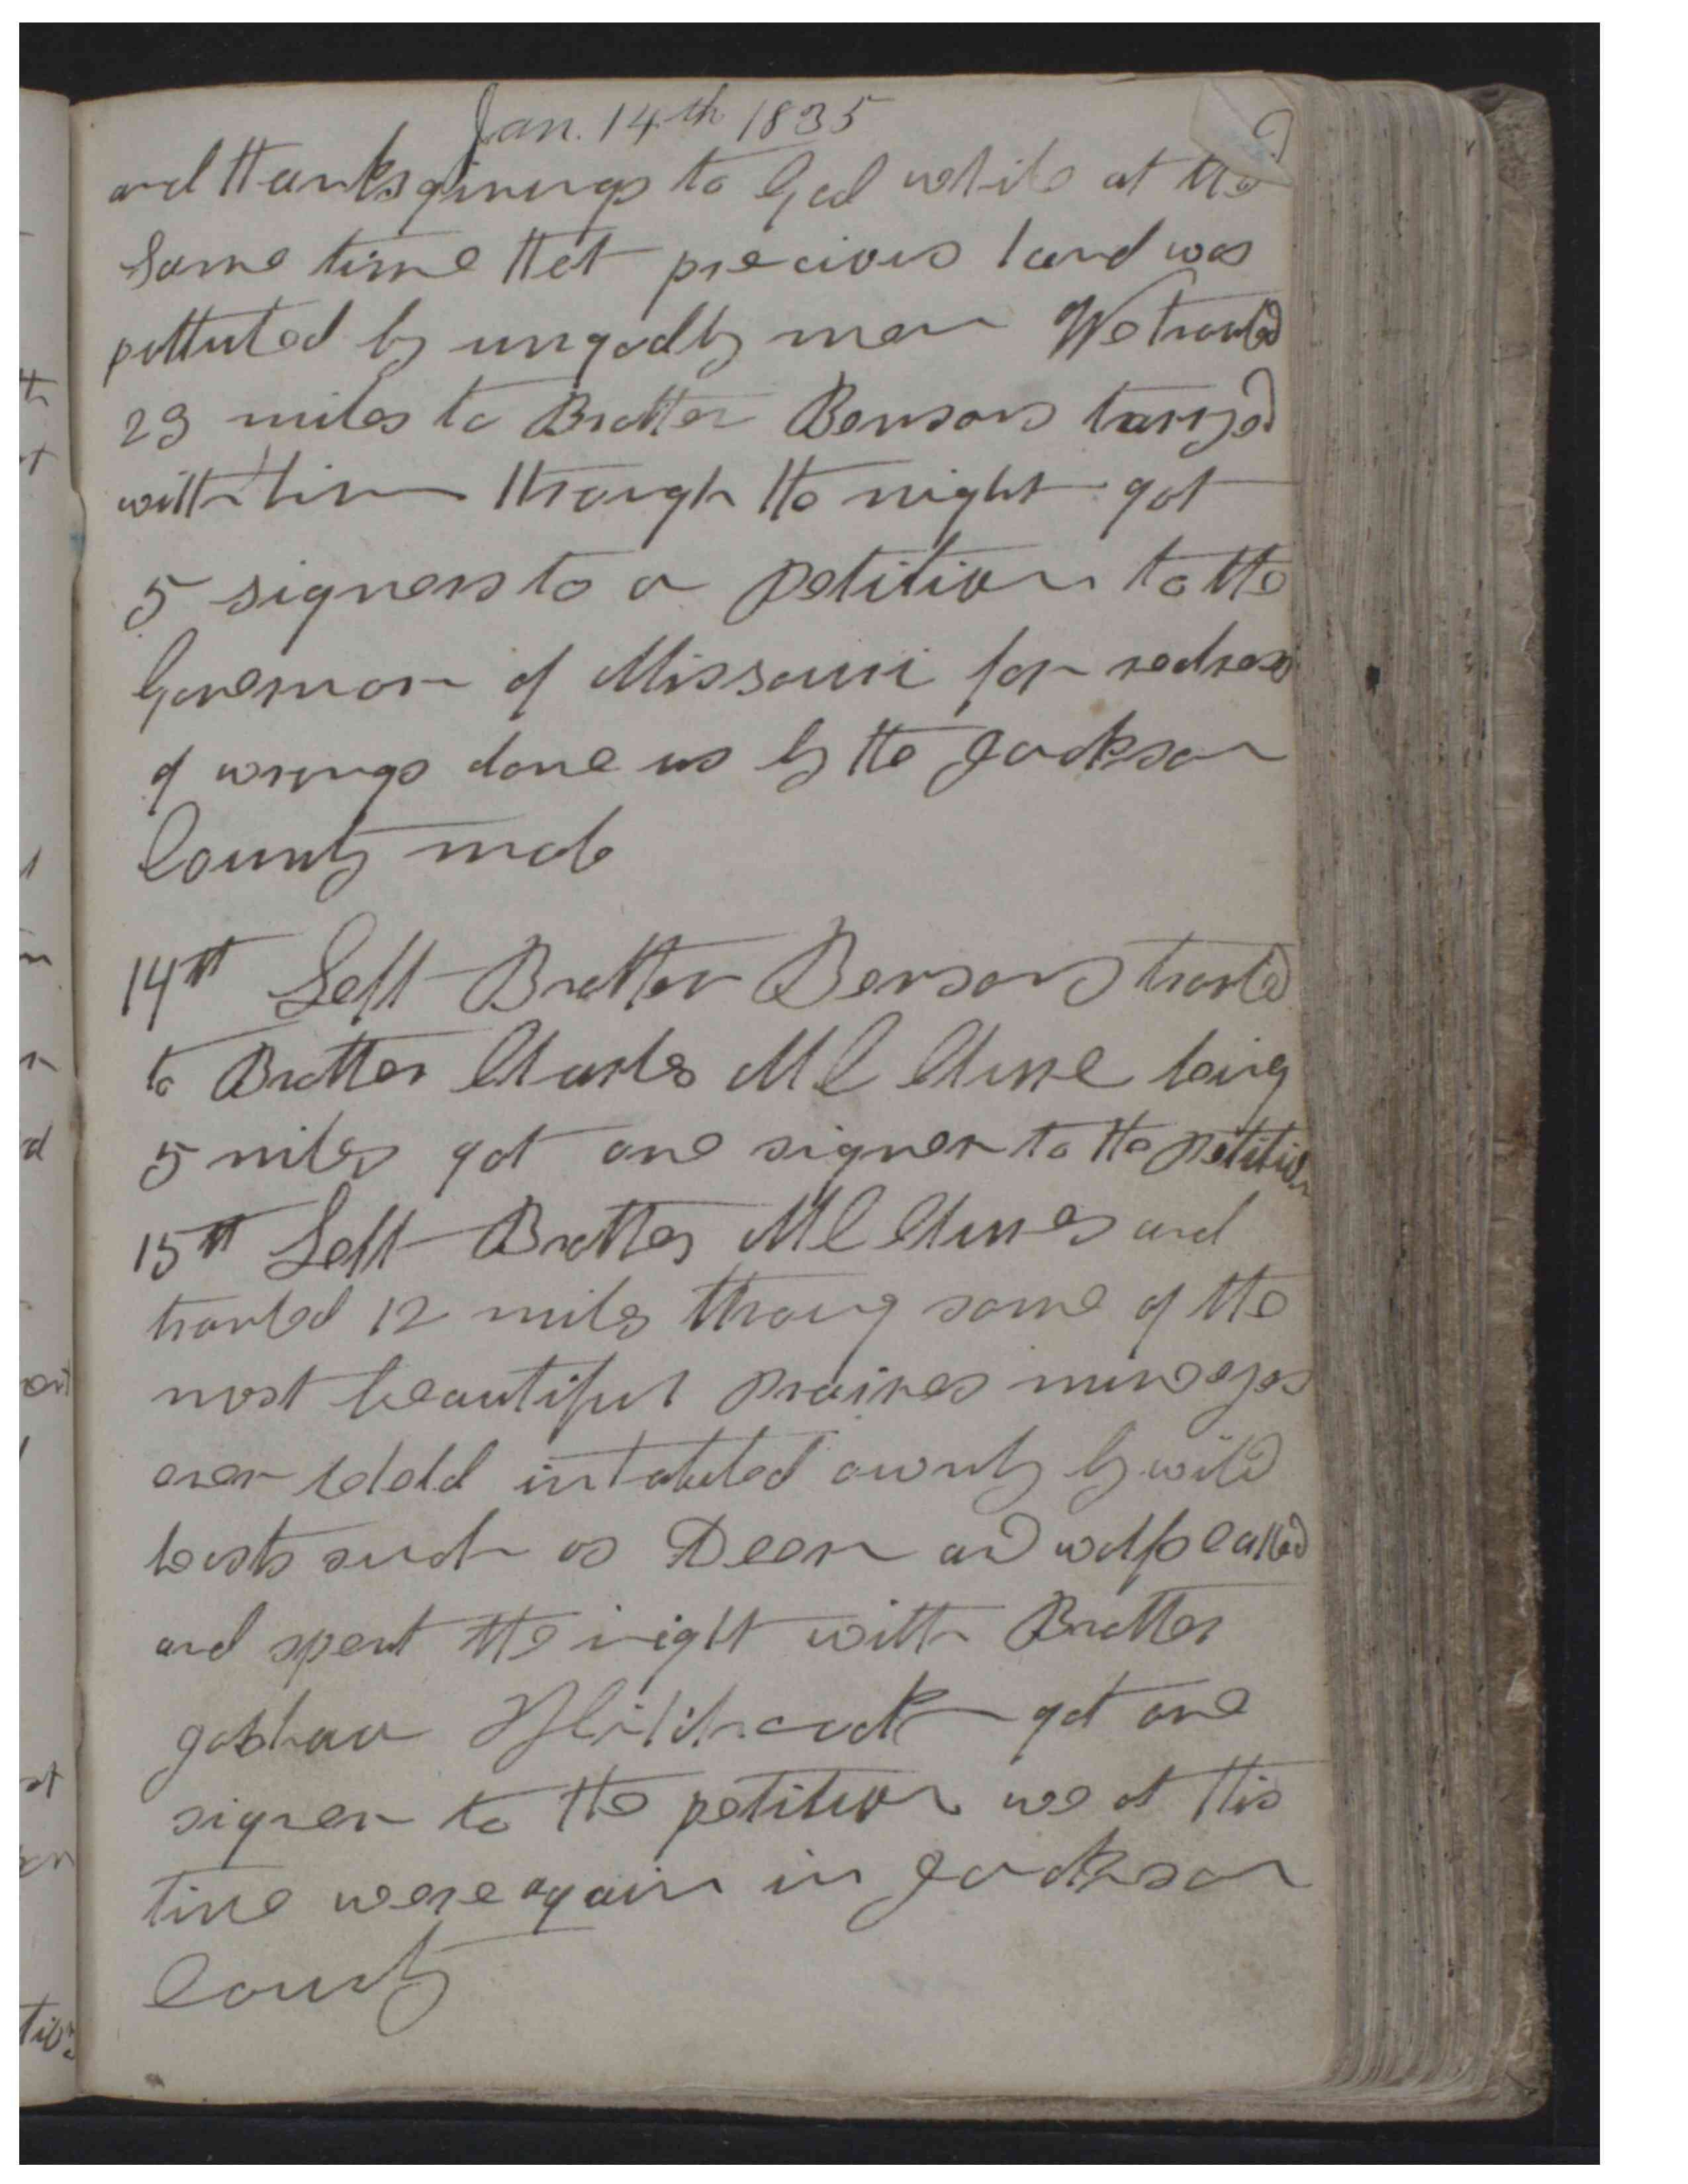 Jan. 14th 1835
and thanksgivings to God while at the
same time that precious land was
polluted by ungodly men We traveled
23 miles to Brother Bensons tarryed
with him through the night got
5 signers to a petition to the
Governor of Missouri for redress
of wrongs done us by the Jackson
County mob
14th Left Brother Bensons traveled
to Brother Charles McClure being
5 miles got one signer to the petition
15th Left Brother McClures and
traveled 12 miles throug some of the
most beautiful praires mine eyes
ever beheld inhabited ownly by wild
beasts such as Deer and wolf called
and spent the night with Brother
Hitchcock got one
signer to the petition we at this
time were again in Jackson
County